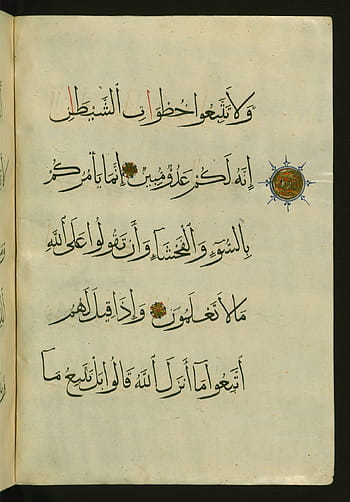 وَلَا تَتَّبِعُوا خُطُوَاتِ الشَّيْطَٰنِ
إِنَّهُ لَكُمْ عَدُوٌّ مُبِينٌ إِنَّمَا يَأْمُرُكُمْ
بِالسُّوءِ وَالْفَحْشَاءِ وَأَن تَقُولُوا عَلَى اللَّهِ
مَا لَا تَعْلَمُونَ وَإِذَا قِيلَ لَهُمُ
اتَّبِعُوا مَا أَنزَلَ اللَّهُ قَالُوا بَلْ نَتَّبِعُ مَا